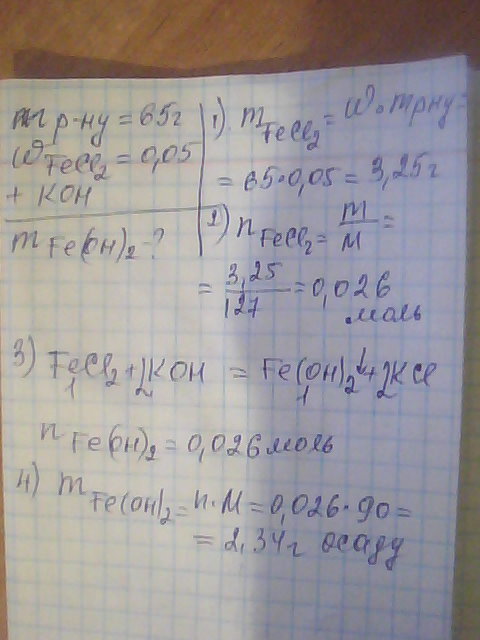 m р-ну = 65г
W FeCl₂ = 0,05
+ KOH
m Fe(OH)₂ - ?
1) m FeCl₂ = W · m р-ну =
= 65 · 0,05 = 3,25г
2) n FeCl₂ = m/M =
= 3,25/127 = 0,026
моль
3) FeCl₂ + 2KOH = Fe(OH)₂↓ + 2KCl
1 2 1 2
n Fe(OH)₂ = 0,026 моль
4) m Fe(OH)₂ = n · M = 0,026 · 90 =
= 2,34г осаду